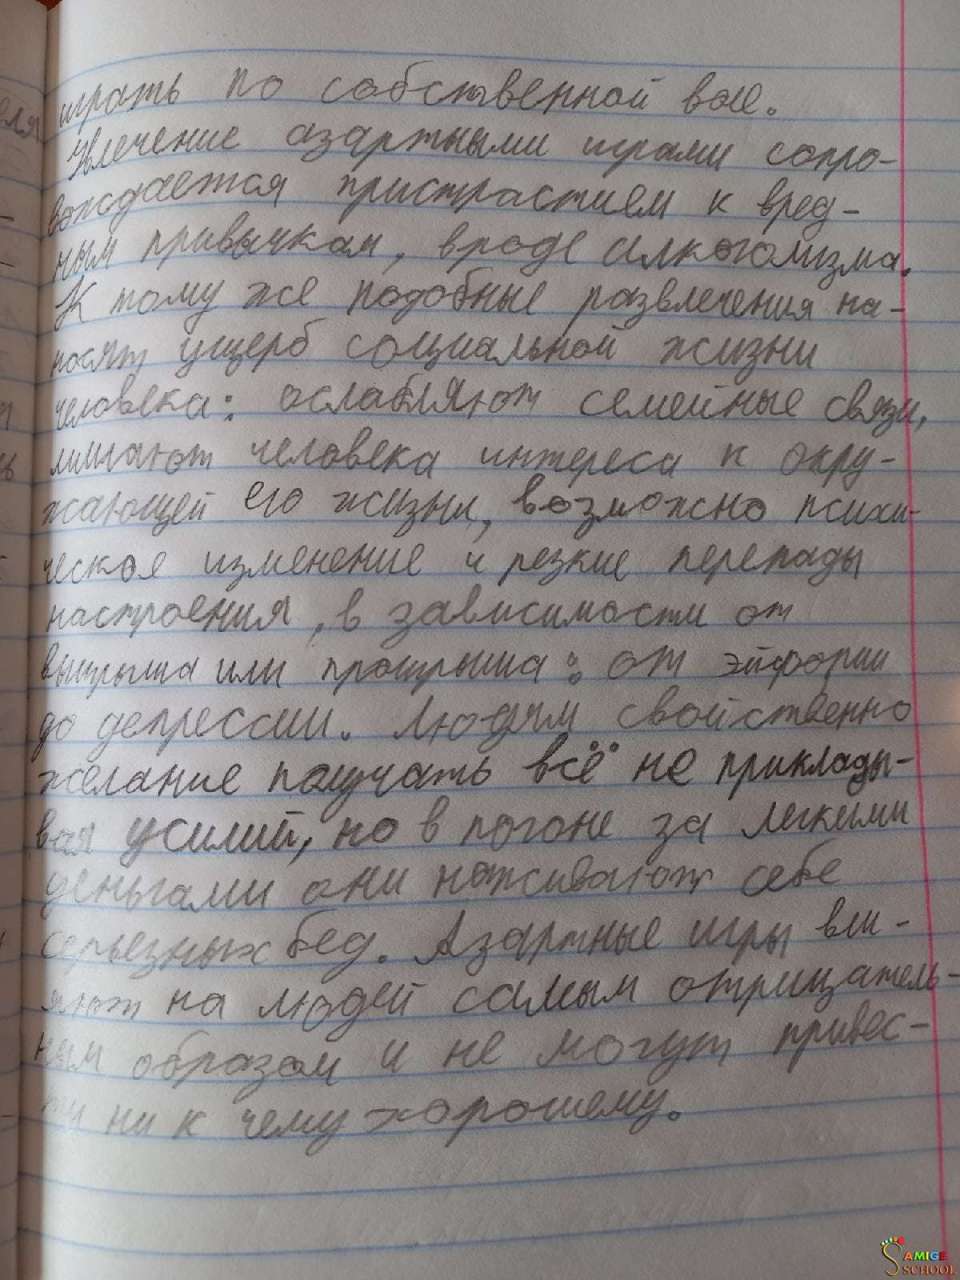 играть по собственной вое.
Увлечение азартными играми сопро-
вождается пристрастием к вред-
ным привычкам, вроде алкоголизма.
К тому же подобные развлечения на-
носят ущерб социальной жизни
человека: ослабляют семейные связи,
лишают человека интереса к окру-
жающей его жизни, возможно психи-
ческое изменение и резкие перепады
настроения, в зависимости от
выигрыша или проигрыша: от эйфории
до депрессии. Людям свойственно
желание получать всё не приклады-
вая усилий, но в погоне за легкими
деньгами они наживают себе
серьезных бед. Азартные игры вли-
яют на людей самым отрицатель-
ным образом и не могут привес-
ти ни к чему хорошему.
AMIGE
SCHOOL